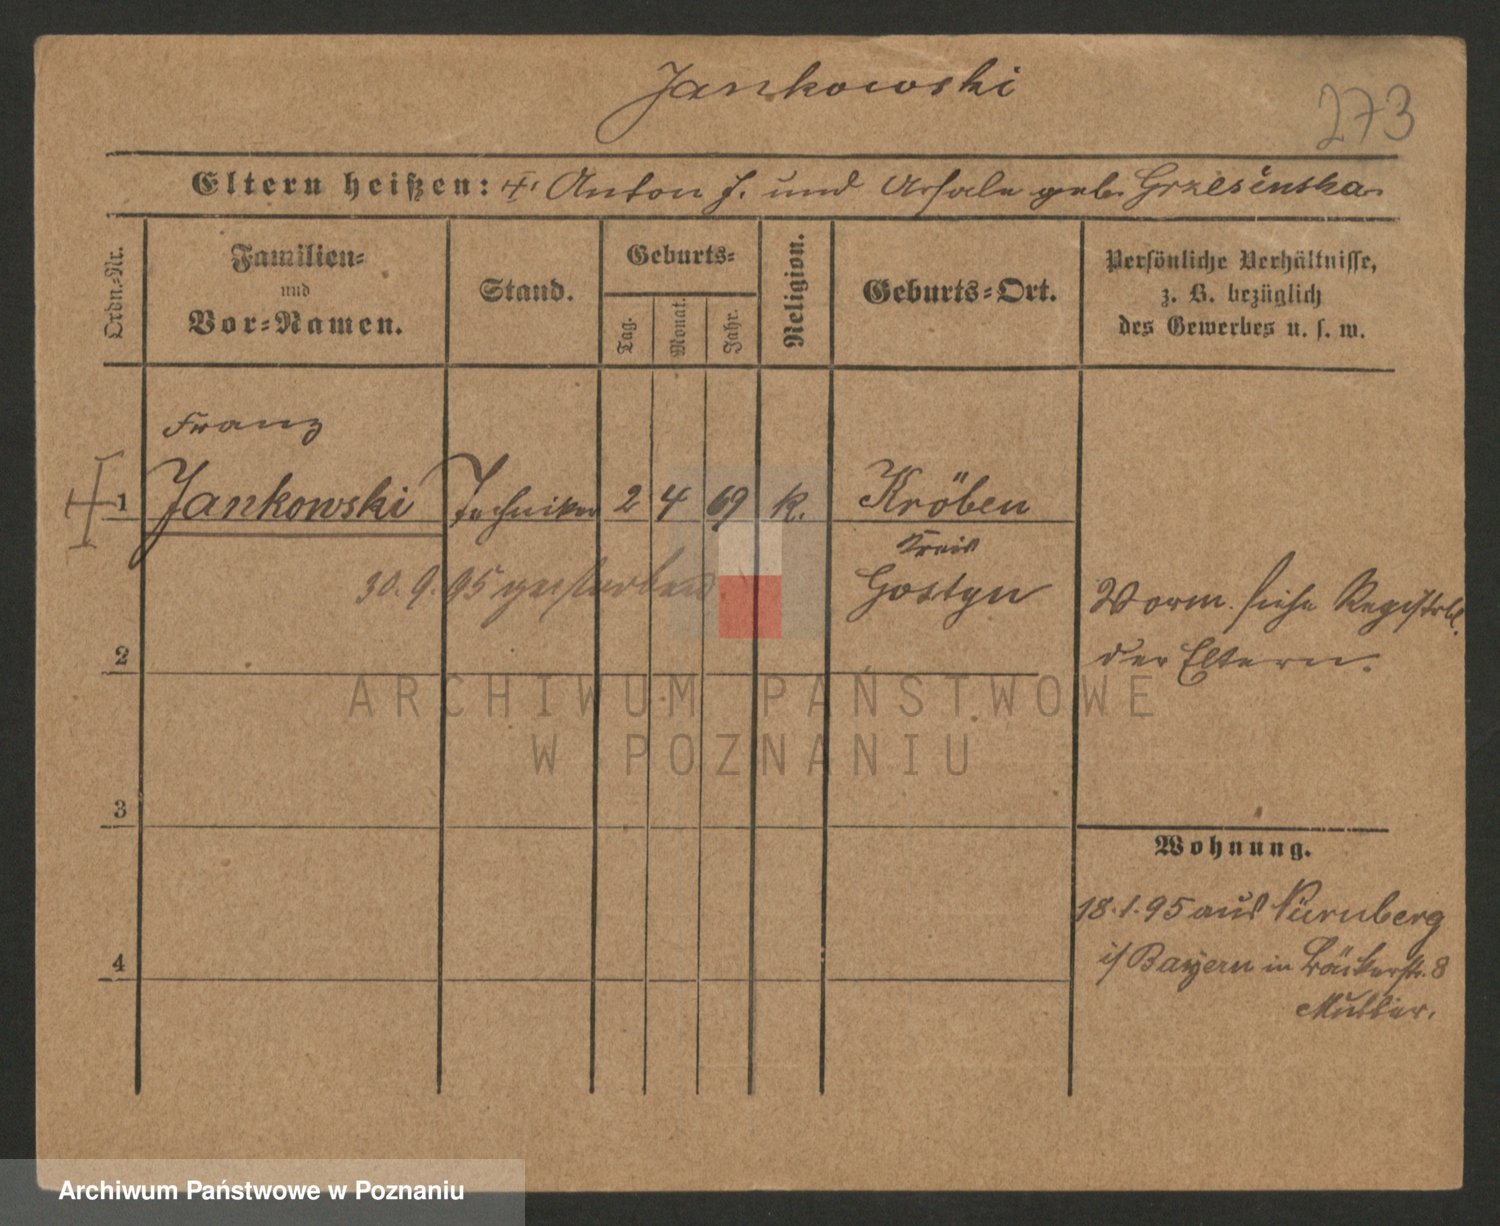 Jankowski
273
Eltern heißen: †. Anton J. und Ursula geb. Grzesinska.
Ordn.-Nr.
Familien- und Vor-Namen.
Stand.
Geburts-
Tag.
Monat.
Jahr.
Religion.
Geburts-Ort.
Persönliche Verhältnisse,
z. B. bezüglich
des Gewerbes u. s. w.
Franz
1 Jankowski Techniker 2 4 69 k. Kröben
Kreis
30.9.95 gestorben Gostyn
Vorm. siehe Registrbl.
der Eltern.
2
3
4
Wohnung.
18.1.95 aus Nürnberg
i/ Bayern in Bäckerstr. 8
Mutter.
ARCHIWUM PAŃSTWOWE
W POZNANIU
Archiwum Państwowe w Poznaniu